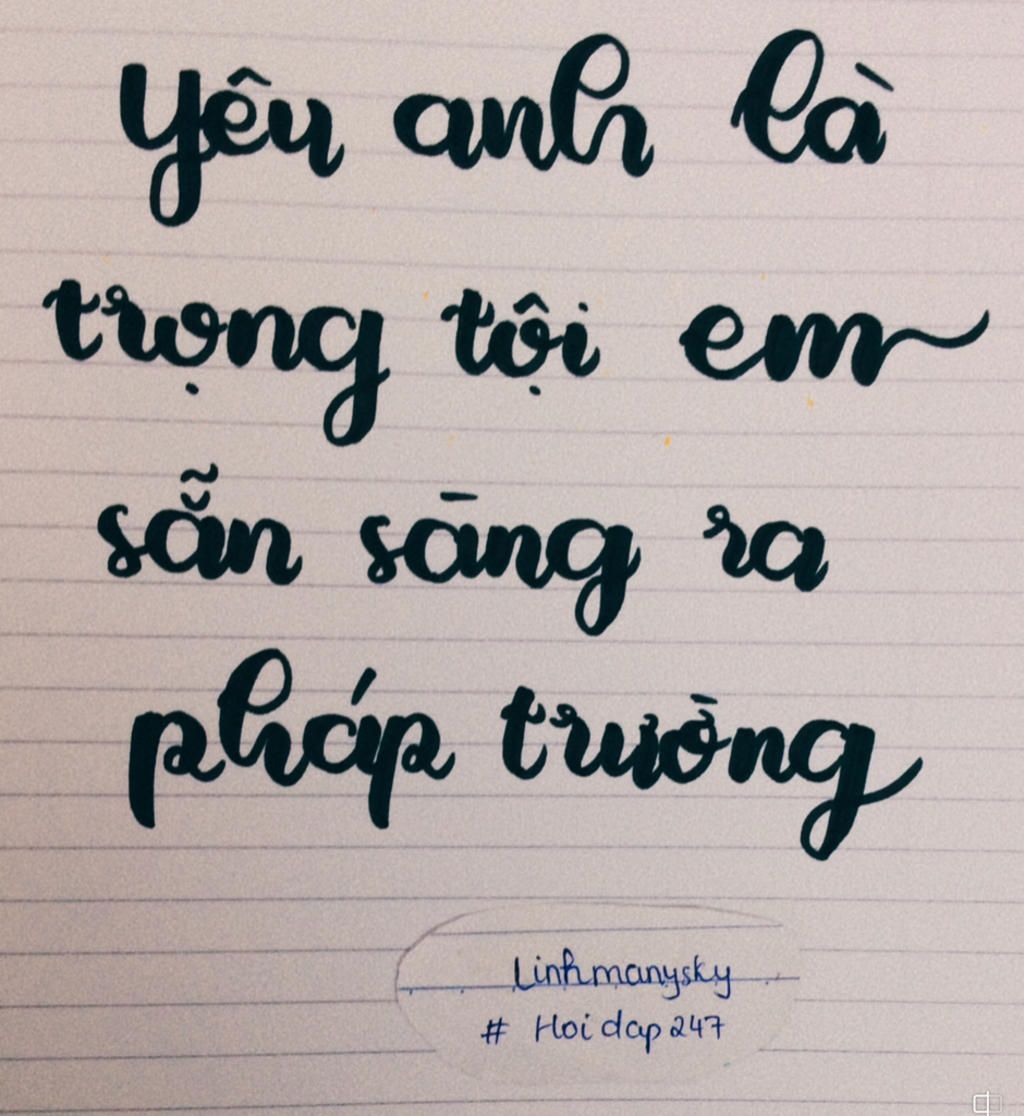 Yêu anh là
trọng tội em
sẵn sàng ra
pháp trường
Linhmanysky
# Hoidap247